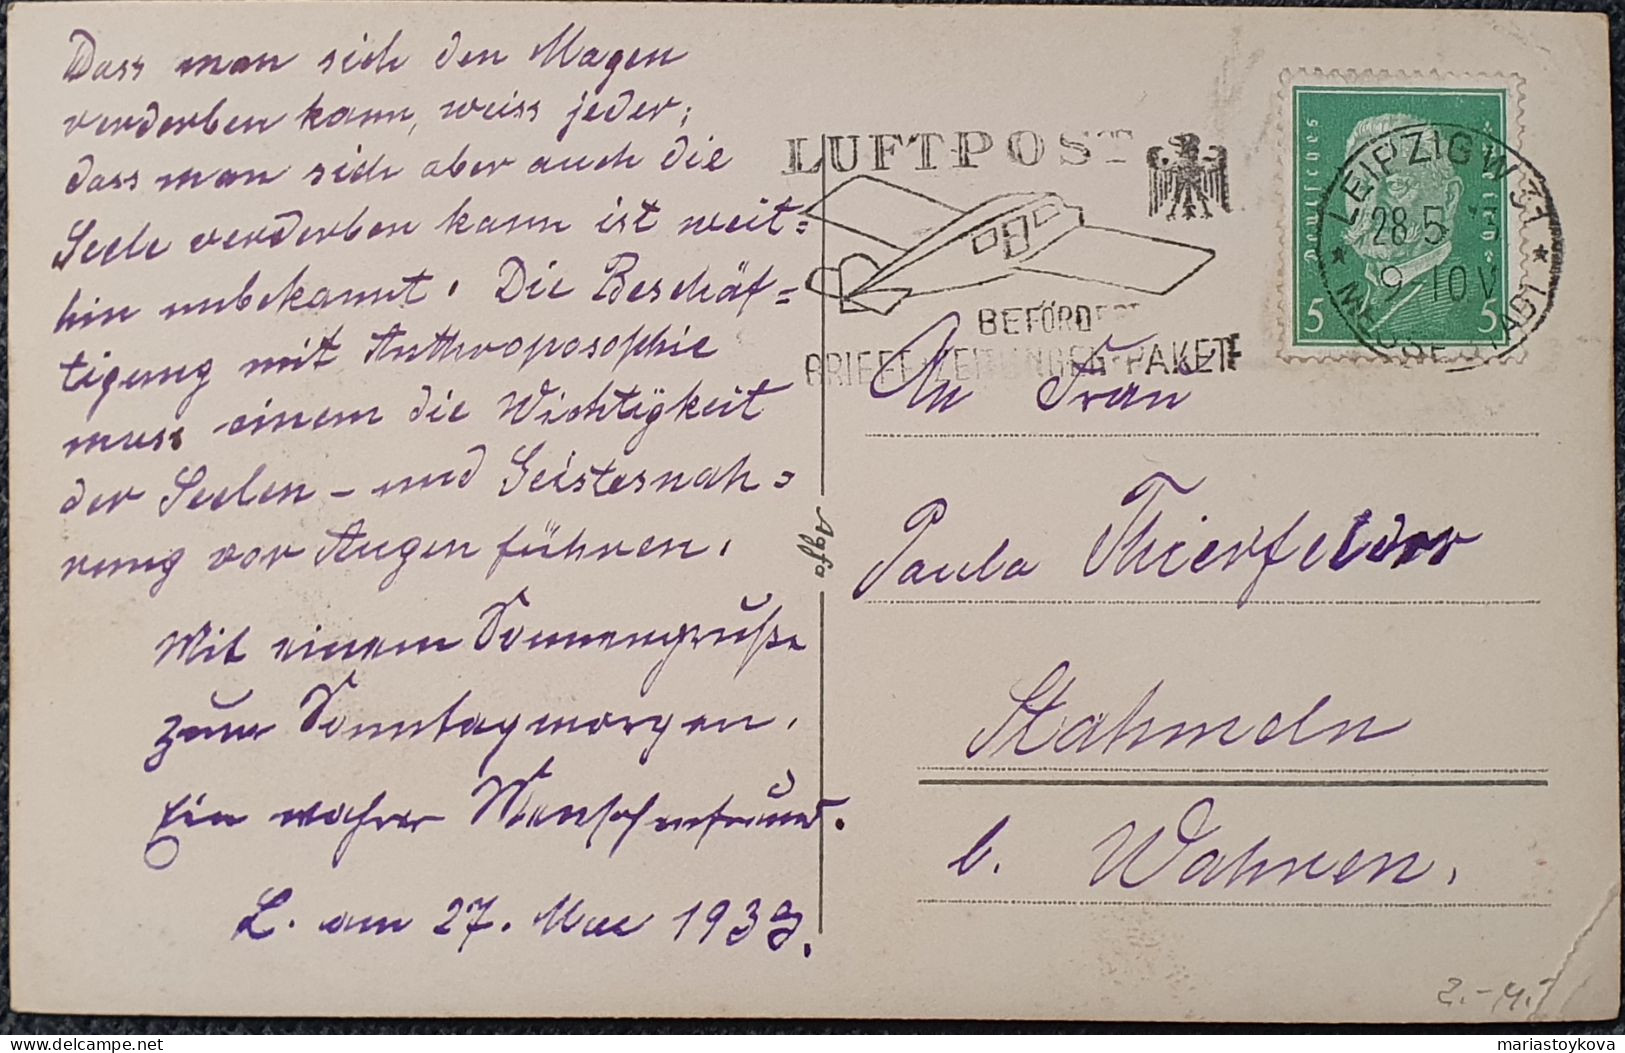 Dass man sich den Magen
verderben kann, weiss jeder;
dass man sich aber auch die
Seele verderben kann ist weit=
hin unbekannt. Die Beschäf=
tigung mit Anthroposophie
muss einem die Wichtigkeit
der Seelen- und Geistesnah=
rung vor Augen führen.
Mit einem Sonnengruße
zum Sonntagmorgen.
Ein wahrer Menschenfreund.
L. am 27. Mai 1933.
Agfa
LUFTPOST
BEFÖRDERT
BRIEFE·ZEITUNGEN·PAKETE
Deutsches Reich
5 5
LEIPZIG W31
28.5
9-10V
MESSESTADT
An Frau
Paula Thierfelder
Stahmeln
b. Wahren.
2.-4.
mariastoykova